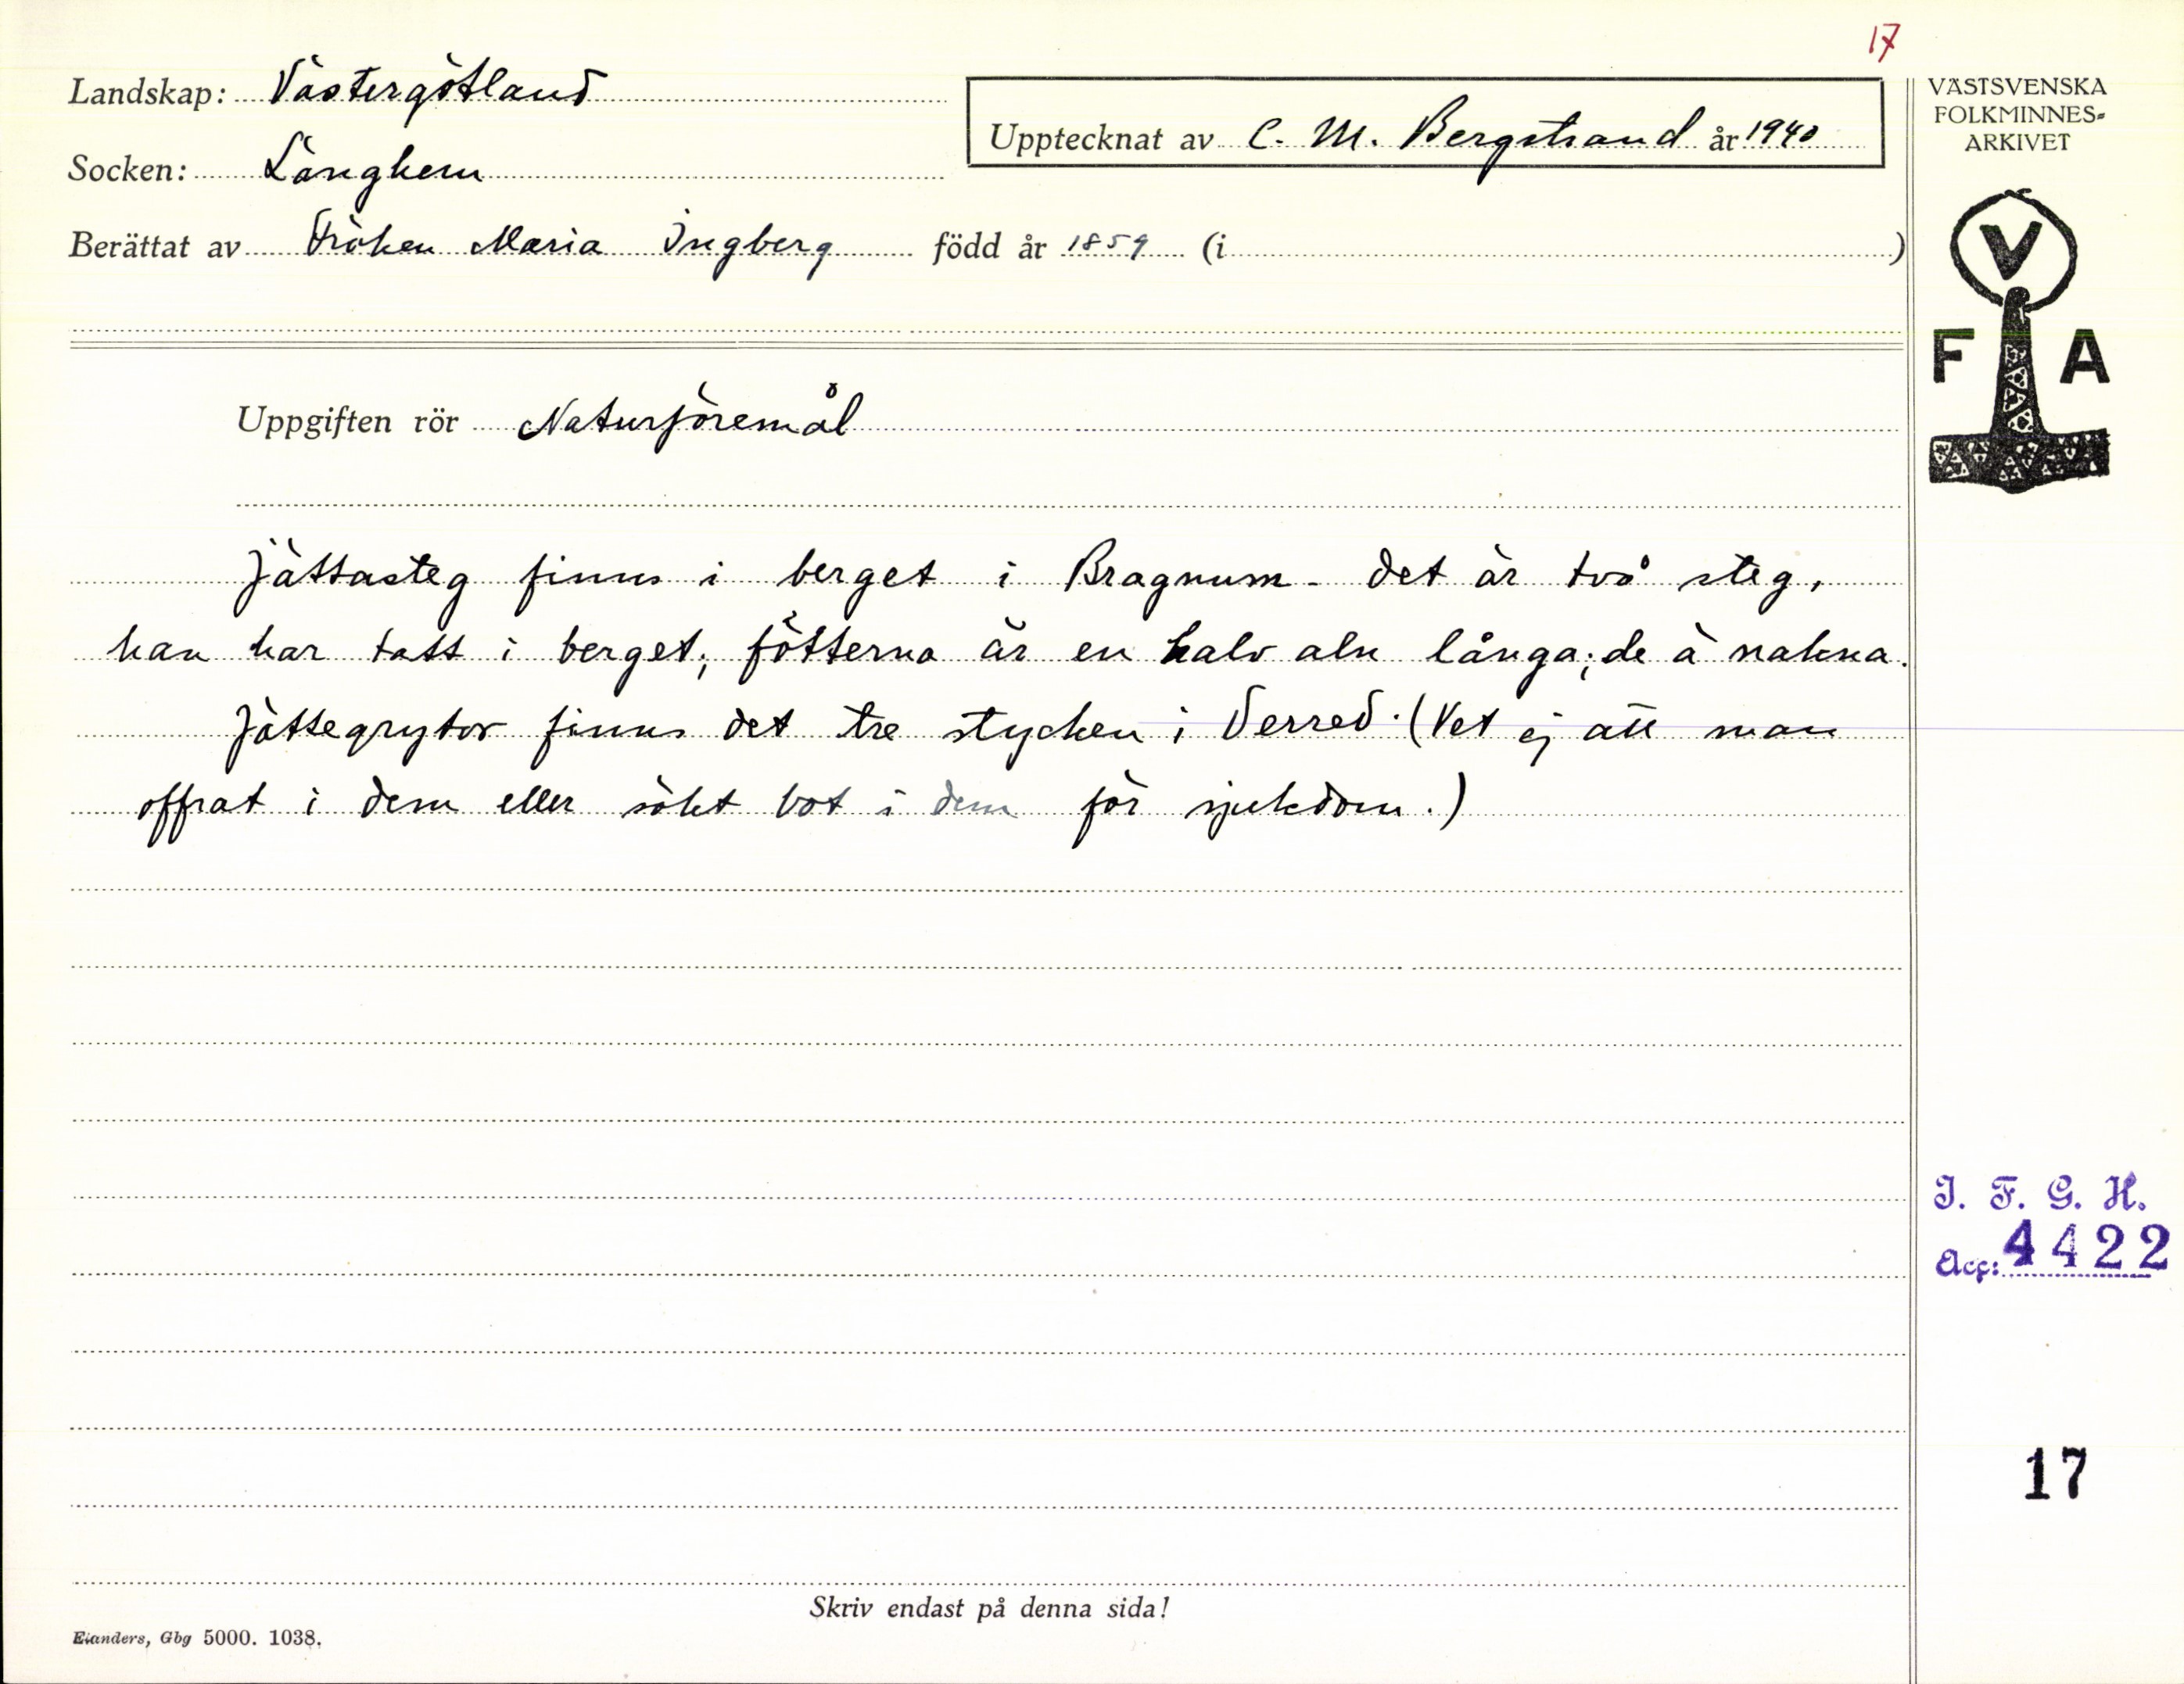 17
Landskap: Västergötland
Socken: Länghem
Upptecknat av C. M. Bergstrand år 1940
Berättat av Fröken Maria Ingberg född år 1859 (i )
Uppgiften rör Naturföremål
Jättasteg finns i berget i Bragnum - det är två steg,
han har tatt i berget; fötterna är en halv aln långa; de ä nakna.
Jättegrytor finns det tre stycken i Verred. (Vet ej att man
offrat i dem eller sökt bot i dem för sjukdom.)
Skriv endast på denna sida!
Elanders, Gbg 5000. 1038.
VÄSTSVENSKA
FOLKMINNES-
ARKIVET
V
F A
I. F. G. H.
Acc: 4422
17